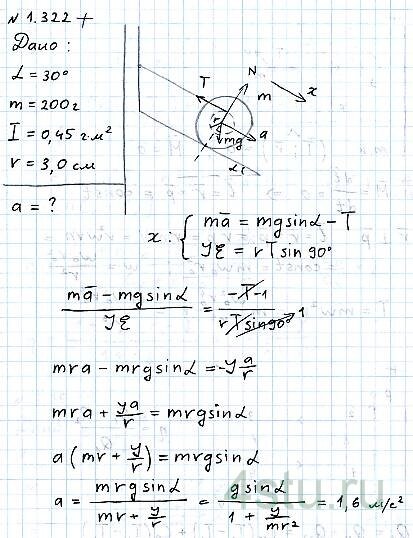 N 1.322 +
Дано:
α = 30°
m = 200 г
I = 0,45 г·м²
r = 3,0 см
a = ?
N
T
m
x
r
a
mg
α
x: { ma̅ = mg sinα − T
Iξ = rT sin 90°
(ma̅ − mg sinα)/(Iξ) = (−T·1)/(rT sin 90°) 1
mra − mrg sinα = −I a/r
mra + Ia/r = mrg sinα
a(mr + I/r) = mrg sinα
a = (mrg sinα)/(mr + I/r) = (g sinα)/(1 + I/(mr²)) = 1,6 м/с²
4stu.ru